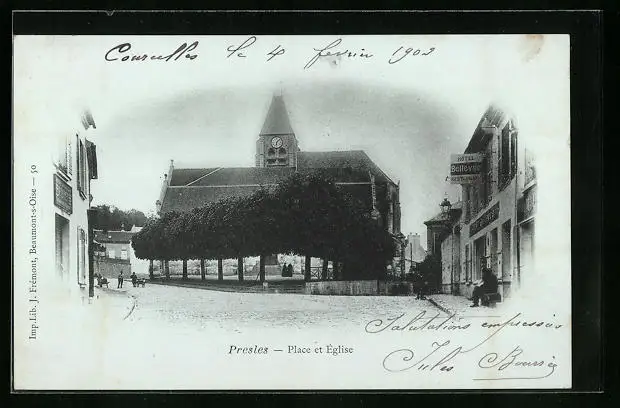 Courcelles le 4 février 1902
HOTEL
Bellevue
RESTAURANT
Presles — Place et Église
Salutations empressées
Jules
Imp. Lib. J. Frémont, Beaumont-s-Oise — 50